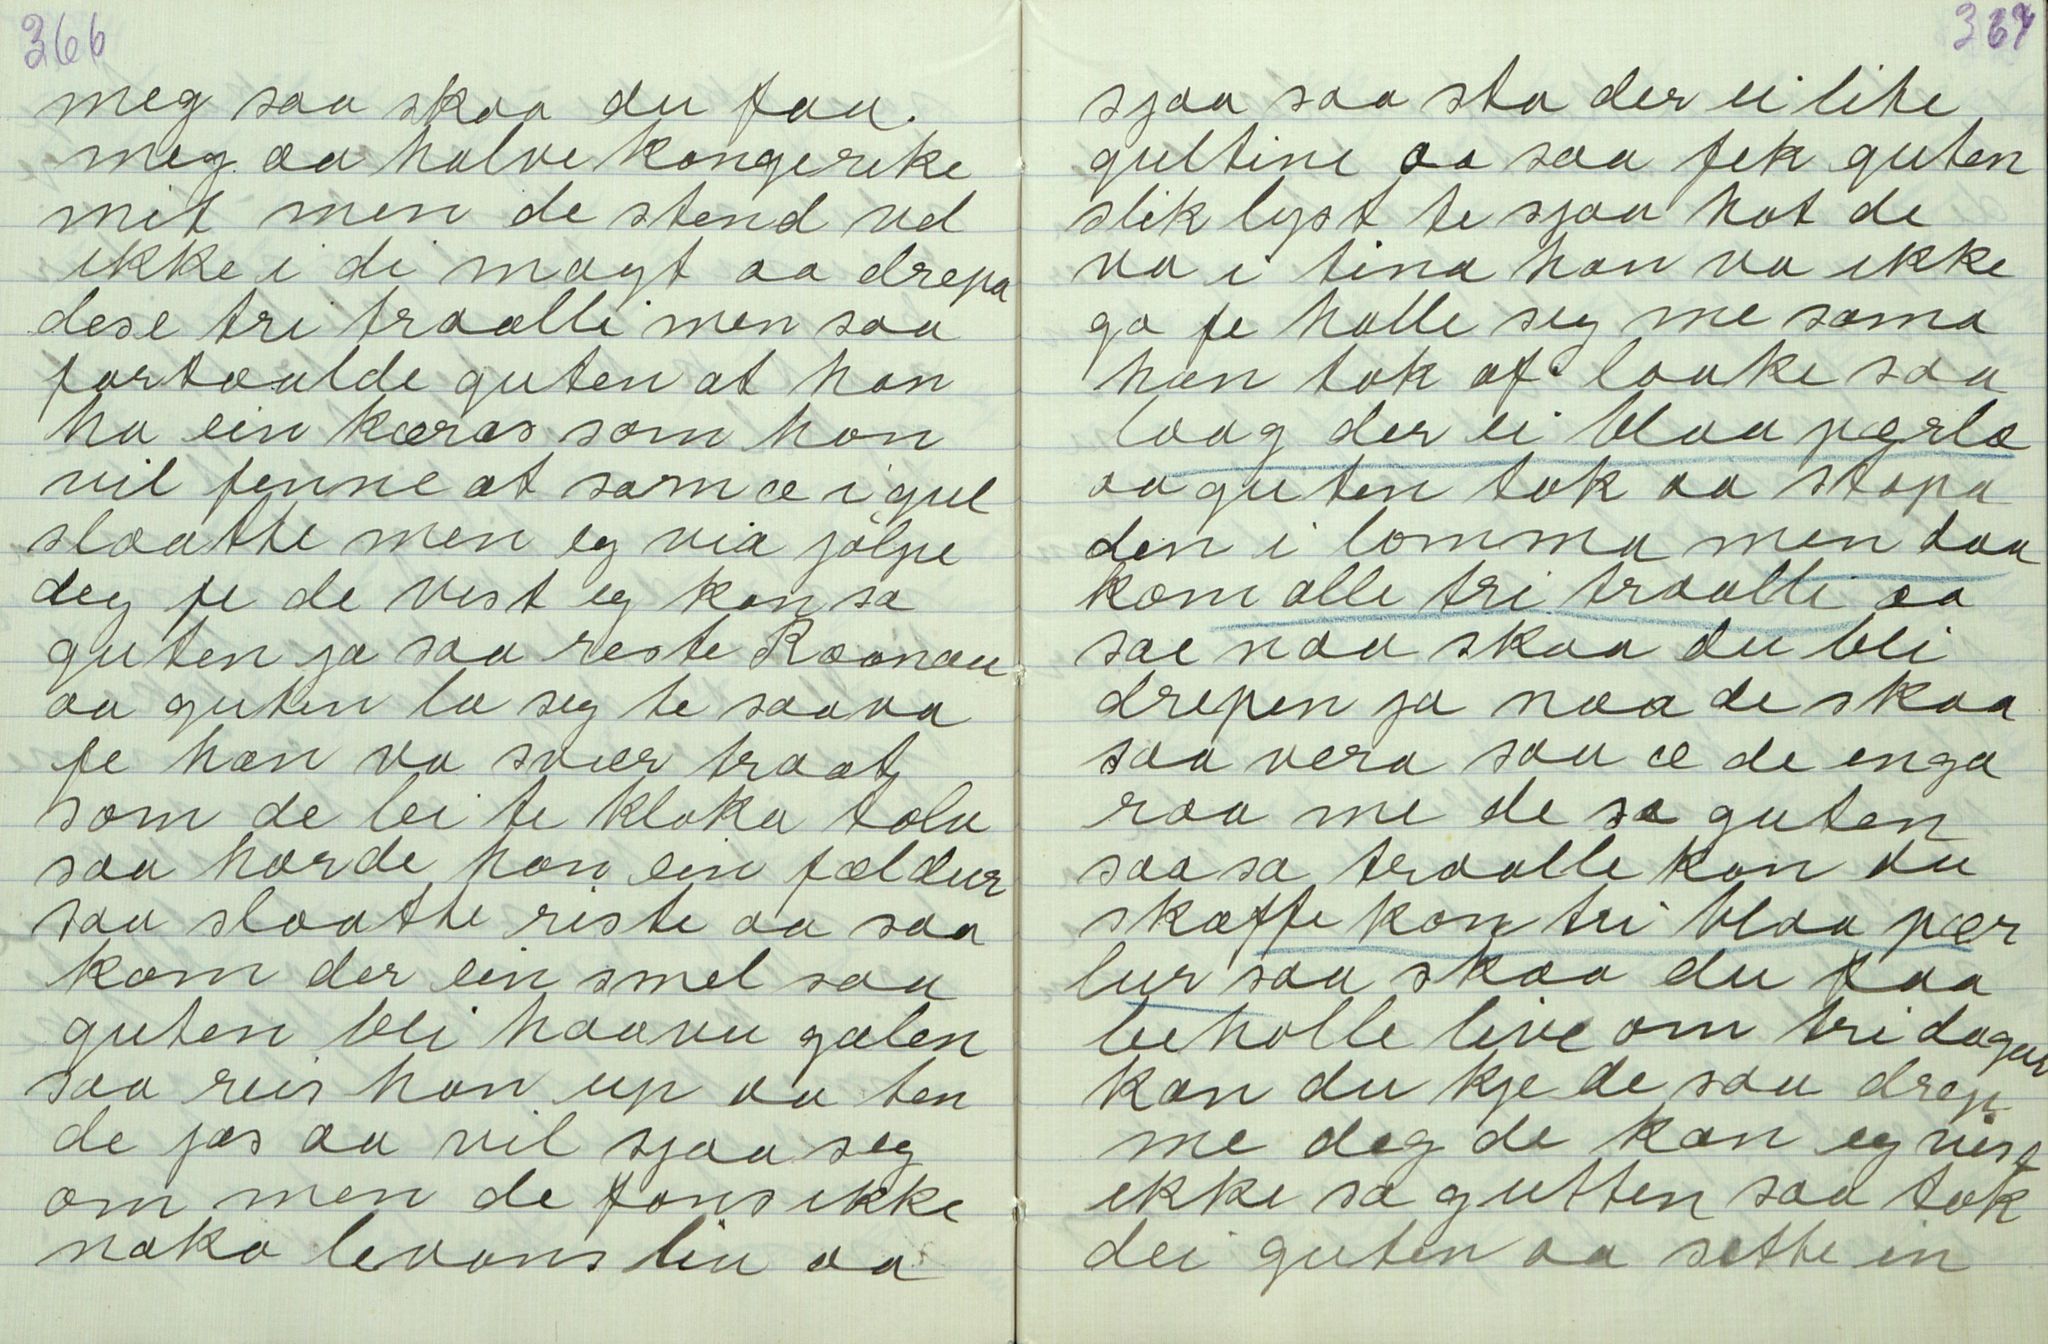 366
meg saa skaa du faa.
meg aa halve kongerike
mit men de stend vel
ikke i di magt aa drepa
dese tri traalli men saa
fortaalde guten at han
ha ein kæras som han
vil fenne at som æ i gul
slaatte men eg via jölpe
deg fe de vist eg kan sa
guten ja saa reste Raanau
aa guten la seg te saava
fe han va svær traat
som de lei te kloka tolv
saa horde han ein fæl dur
saa slaatte riste aa saa
kom der ein smel saa
guten blei haavu galen
saa reis han up aa ten
de jos aa vil sjaa seg
om men de fans ikke
noko levans liv aa
367
sjaa saa sto der ei lite
gultine aa saa fek guten
slik lyst te sjaa kot de
va i tina han va ikke
go fe halle seg me soma
han tok af laake saa
laag der ei blaa pærla
aa guten tok aa stapa
den i lomma men daa
kom alle tri traalli aa
sae naa skaa du bli
drepen ja naa de skaa
saa vera saa æ de enga
raa me de sa guten
saa sa traalle kan du
skaffe kon tri blaa pær
lur saa skaa du faa
beholle live om tri dagar
kan du kje de saa drep
me deg de kan eg vist
ikke sa gutten saa tok
dei guten aa sette in